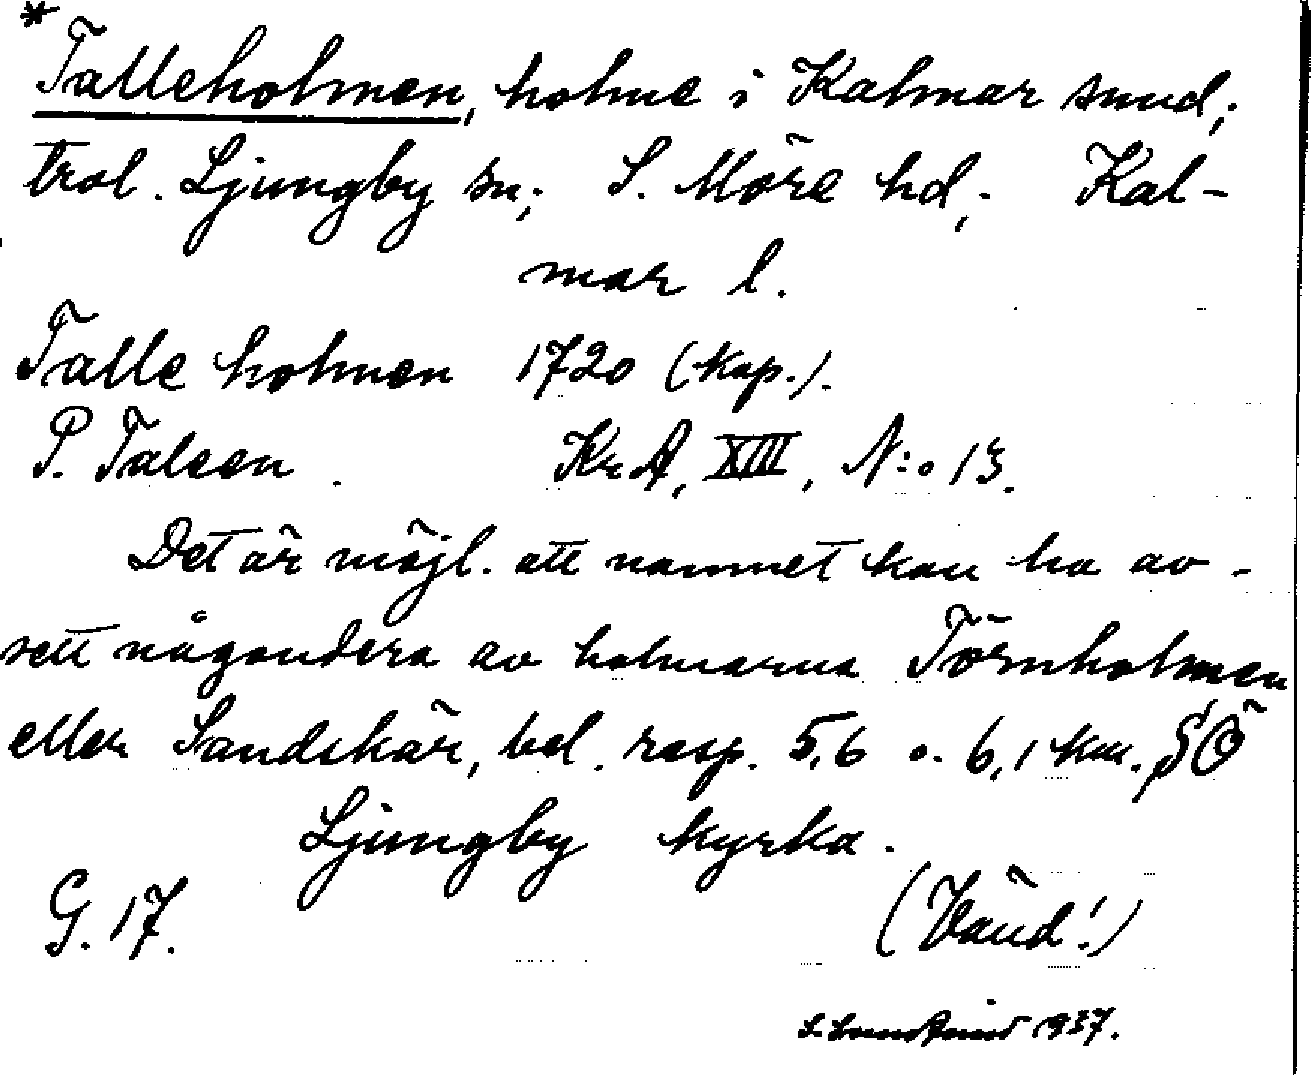 *Talleholmen, holme i Kalmar sund;
trol. Ljungby sn; S. Möre hd; Kal-
mar l.
Talle holmen 1720 (kop.).
P. Taleen. KrA, XIII, N:o 13.
Det är möjl. att namnet kan ha av-
sett någondera av holmarna Törnholmen
eller Sandskär, bel. resp. 5,6 o. 6,1 km. SÖ
Ljungby kyrka.
G. 17. (Vänd!)
1937.